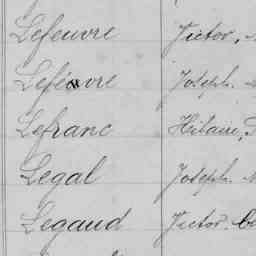 Lefeuvre Victor,
Lefeuvre Joseph.
Lefranc Hilaire,
Legal Joseph.
Legaud Victor.